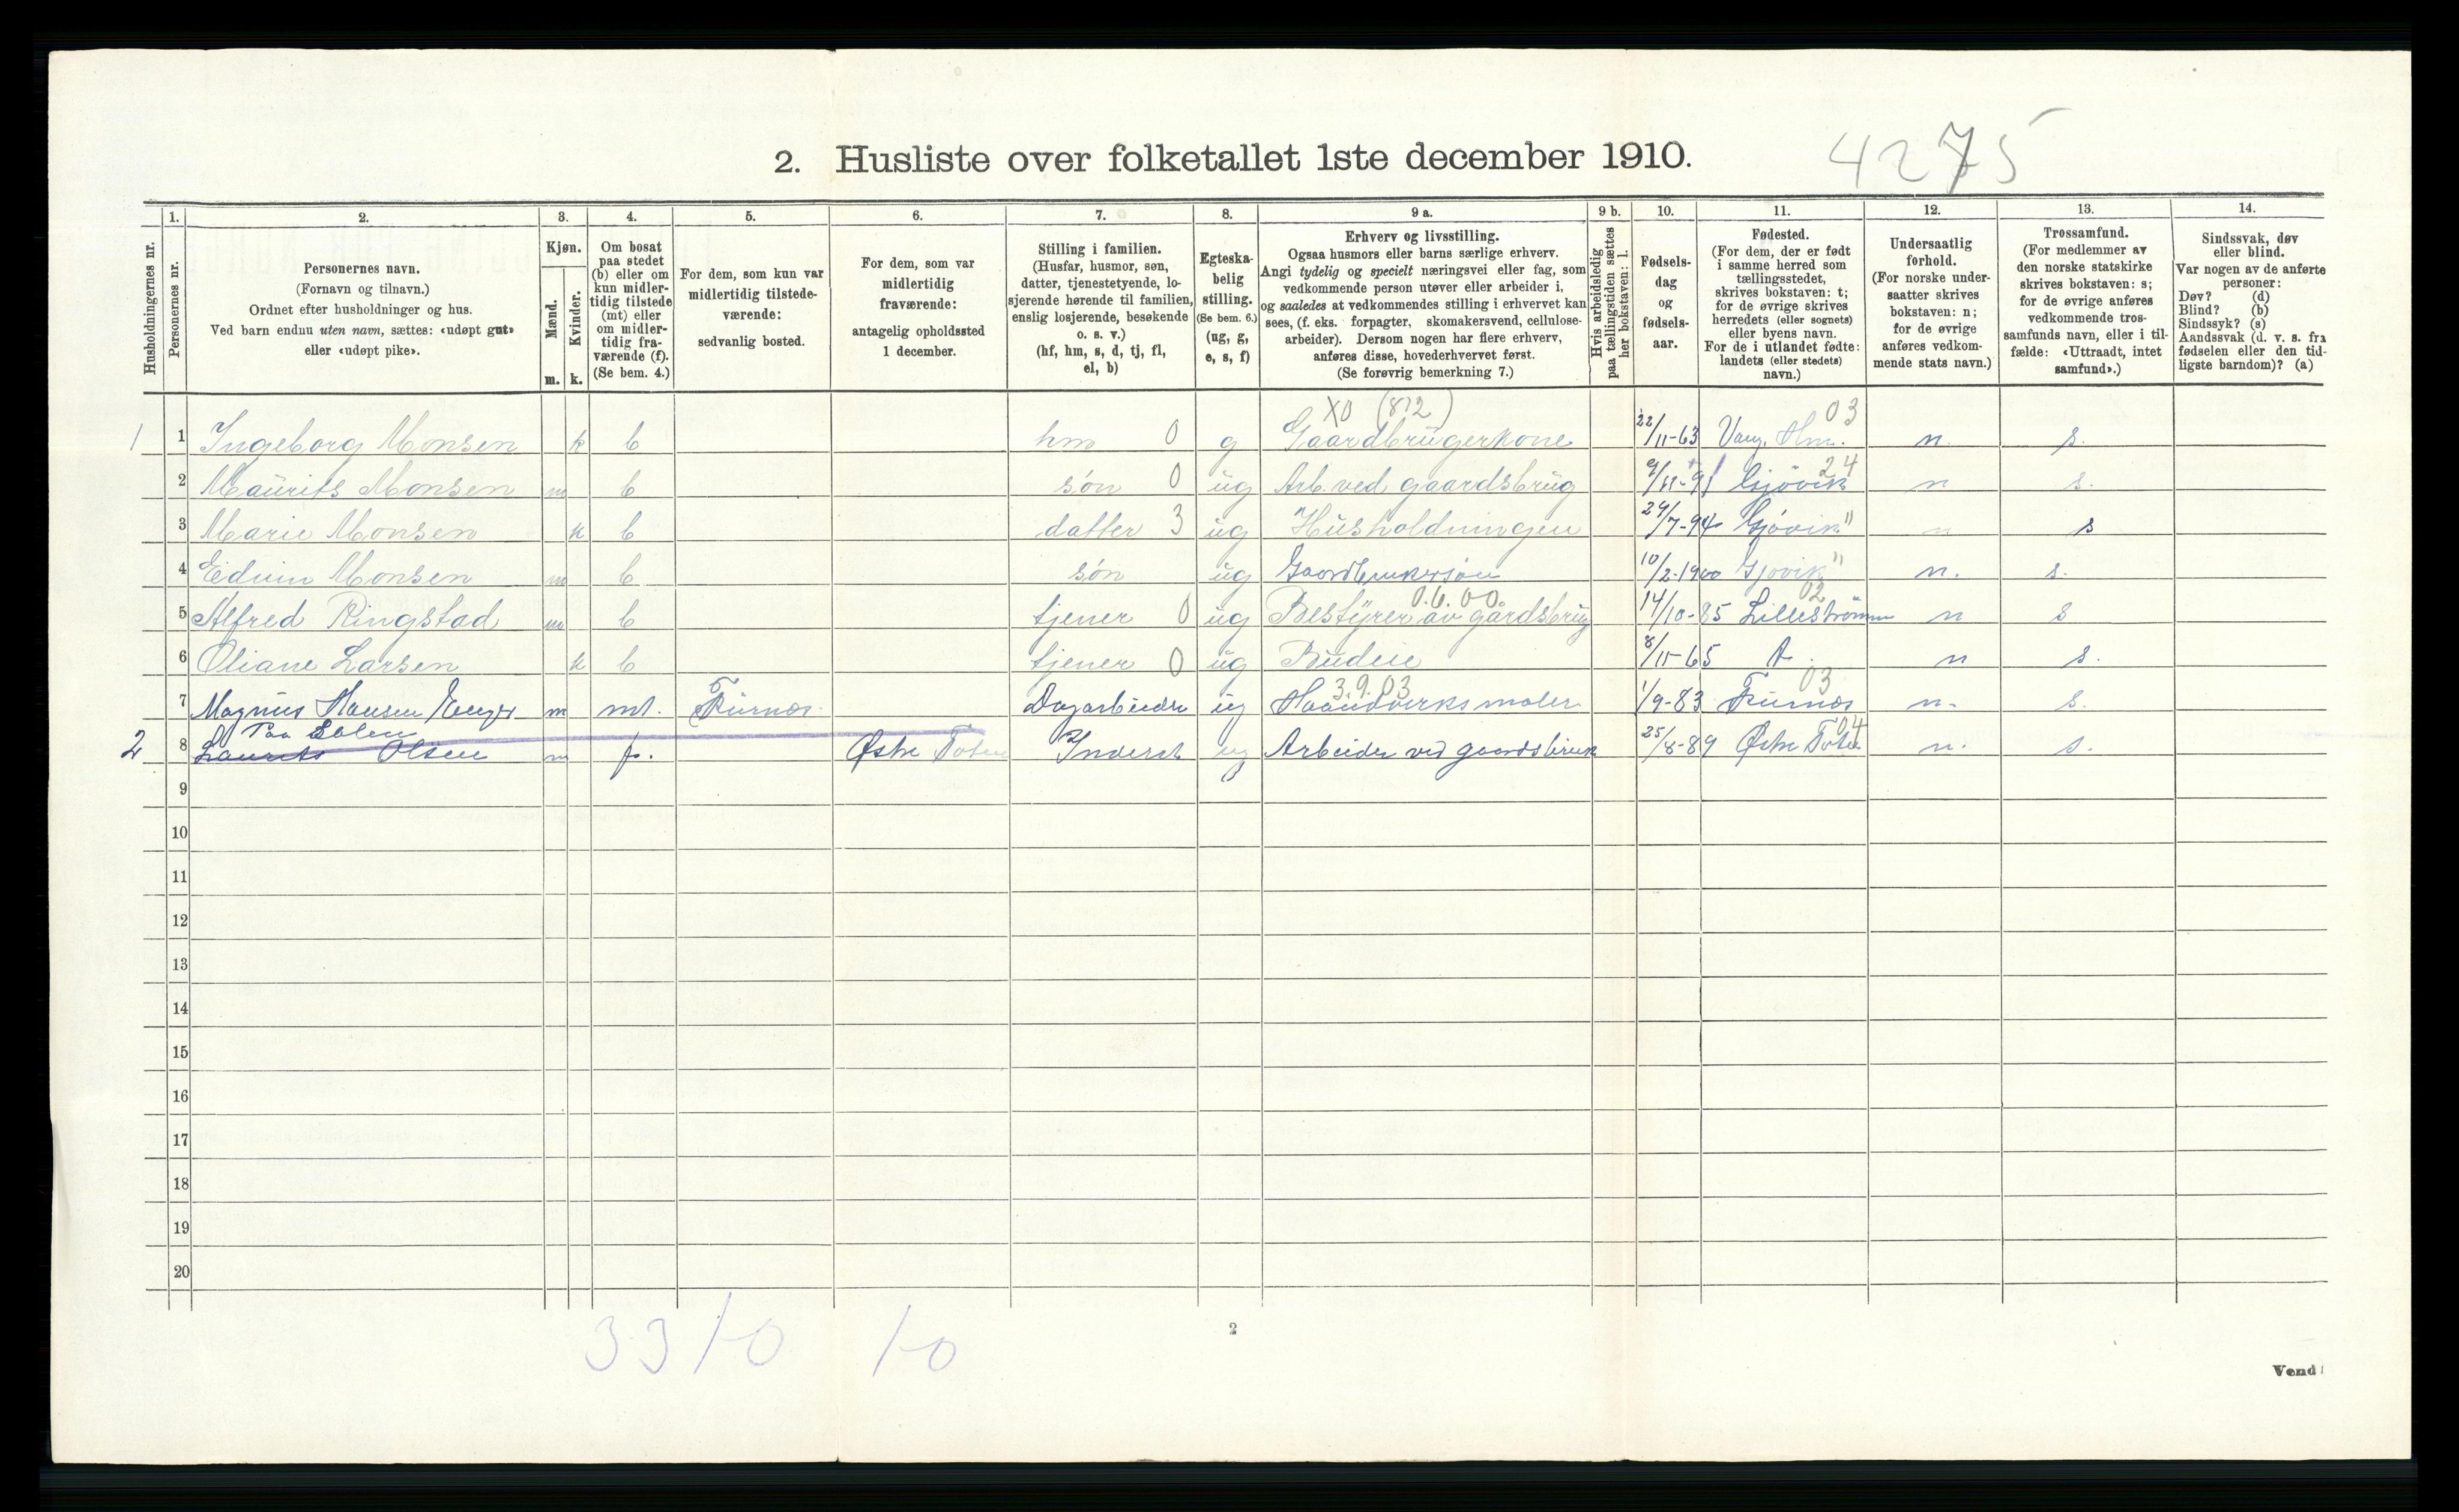 2. Husliste over folketallet 1ste december 1910.
4275
Husholdningernes nr.
1.
Personernes nr.
2.
Personernes navn.
(Fornavn og tilnavn.)
Ordnet efter husholdninger og hus.
Ved barn endnu uten navn, sættes: «udøpt gut»
eller «udøpt pike».
3.
Kjøn.
Mænd.
Kvinder.
m. k.
4.
Om bosat
paa stedet
(b) eller om
kun midler-
tidig tilstede
(mt) eller
om midler-
tidig fra-
værende (f).
(Se bem. 4.)
5.
For dem, som kun var
midlertidig tilstede-
værende:
sedvanlig bosted.
6.
For dem, som var
midlertidig
fraværende:
antagelig opholdssted
1 december.
7.
Stilling i familien.
(Husfar, husmor, søn,
datter, tjenestetyende, lo-
sjerende hørende til familien,
enslig losjerende, besøkende
o. s. v.)
(hf, hm, s, d, tj, fl,
el, b)
8.
Egteska-
belig
stilling.
(Se bem. 6.)
(ug, g,
e, s, f)
9 a.
Erhverv og livsstilling.
Ogsaa husmors eller barns særlige erhverv.
Angi tydelig og specielt næringsvei eller fag, som
vedkommende person utøver eller arbeider i,
og saaledes at vedkommendes stilling i erhvervet kan
sees, (f. eks. forpagter, skomakersvend, cellulose-
arbeider). Dersom nogen har flere erhverv,
anføres disse, hovederhvervet først.
(Se forøvrig bemerkning 7.)
9 b.
Hvis arbeidsledig
paa tællingstiden sættes
her bokstaven: l.
10.
Fødsels-
dag
og
fødsels-
aar.
11.
Fødested.
(For dem, der er født
i samme herred som
tællingsstedet,
skrives bokstaven: t;
for de øvrige skrives
herredets (eller sognets)
eller byens navn.
For de i utlandet fødte:
landets (eller stedets)
navn.)
12.
Undersaatlig
forhold.
(For norske under-
saatter skrives
bokstaven: n;
for de øvrige
anføres vedkom-
mende stats navn.)
13.
Trossamfund.
(For medlemmer av
den norske statskirke
skrives bokstaven: s;
for de øvrige anføres
vedkommende tros-
samfunds navn, eller i til-
fælde: «Uttraadt, intet
samfund».)
14.
Sindssvak, døv
eller blind.
Var nogen av de anførte
personer:
Døv? (d)
Blind? (b)
Sindssyk? (s)
Aandssvak (d. v. s. fra
fødselen eller den tid-
ligste barndom)? (a)
X0 (812) 03
1 1 Ingeborg Monsen k b hm 0 g Gaardbrugerkone 22/11-63 Vang. Hm. n. s.
24
2 Maurits Monsen m b søn 0 ug Arb. ved gaardsbrug 9/11-91 Gjøvik n s.
3 Marie Monsen k b datter 3 ug Husholdningen 29/7-94 Gjøvik " n s
4 Edvin Monsen m b søn ug Gaardbrukersøn 10/2-1900 Gjøvik " n. s.
0.6.00. 02
5 Alfred Ringstad m b tjener 0 ug Bestyrer av gårdsbrug 14/10-85 Lillestrømm n s
6 Oliane Larsen k b tjener 0 ug Budeie 8/11-65 t. n s.
3.9.03 03
7 Magnus Hansen Enger m mt. Furnes Dagarbeider ug Haandverksmaler 1/9-83 Furnes n. s.
Paa Solen 04
2 8 Laurits Olsen m f. Østre Toten Inderst ug Arbeider ved gaardsbruk 25/8-89 Østre Toten n. s.
9
10
11
12
13
14
15
16
17
18
19
20
33 1-0 1-0
2
Vend!